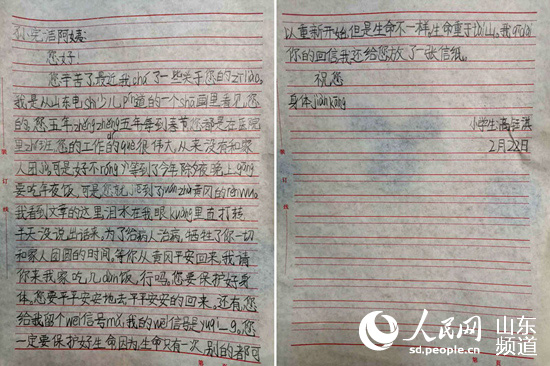 孙宏洁阿姨:
您好!
您辛苦了,最近我shōu了一些关于您的zī liào,
我是从山东电shì少儿pín道的一个shì画里看见您
的。您五年zhěngzhěng五年每到春节,您都是在医院
里zhí班,您的工作的què很伟大,从来没有和家
人团圆,可是好不róng yì等到了今年除夕夜晚上gāng
要吃午夜饭,可是您就
黄冈的rènwu。
我看到文章的这里泪水在我眼kuàng里直打转
半天没说出话来,为了给病人治病,牺牲了你一切
和家人团圆的时间。等你从黄冈平安回来,我请
你来我家吃儿dùn饭,行吗。您要保护好身
体。您要平平安安地去平平安安的回来。还有,您
给我留个wēi信号mǎ,我的wēi信是yug_g。您
一定要保护好生命因为,生命只有一次,别的都可
以重新开始,但是生命不一样,生命重于tài山。我
你的回信我还给您放了一张信纸。
祝您
身体jiànkāng
小学生
2月28日
第
订
线
第
订
线
人民网 山东频道
sd.people.com.cn